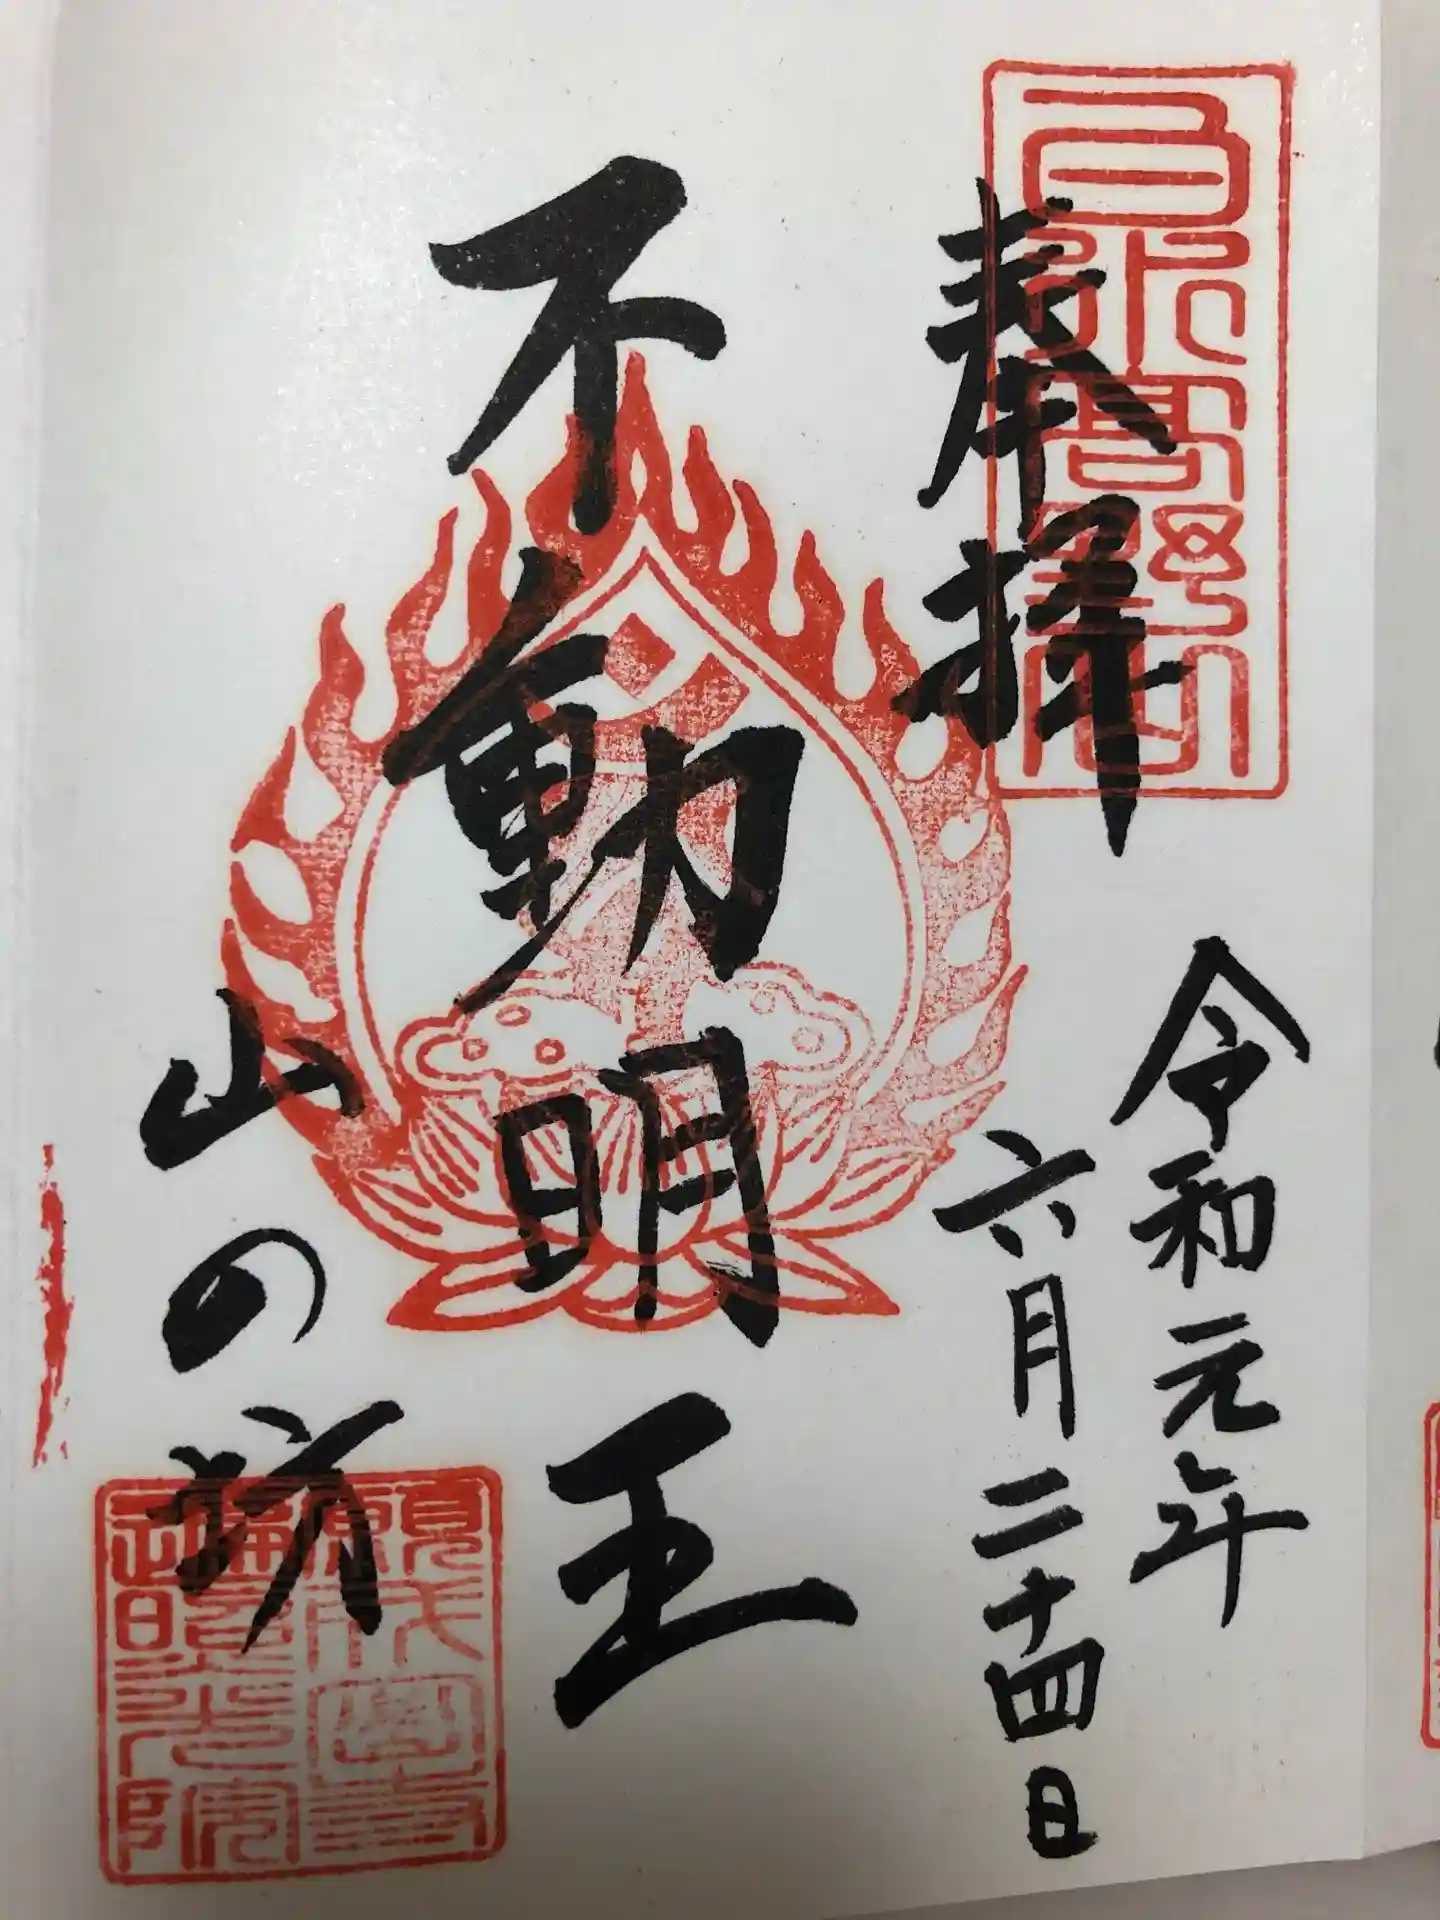 奉拝
令和元年
六月二十四日
不動明王
山の坊